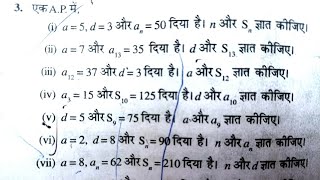 3. एक A.P. में,
(i) a = 5, d = 3 और aₙ = 50 दिया है। n और Sₙ ज्ञात कीजिए।
(ii) a = 7 और a₁₃ = 35 दिया है। d और S₁₃ ज्ञात कीजिए।
(iii) a₁₂ = 37 और d = 3 दिया है। a और S₁₂ ज्ञात कीजिए।
(iv) a₃ = 15 और S₁₀ = 125 दिया है। d और a₁₀ ज्ञात कीजिए।
(v) d = 5 और S₉ = 75 दिया है। a और a₉ ज्ञात कीजिए।
(vi) a = 2, d = 8 और Sₙ = 90 दिया है। n और aₙ ज्ञात कीजिए।
(vii) a = 8, aₙ = 62 और Sₙ = 210 दिया है। n और d ज्ञात कीजिए।